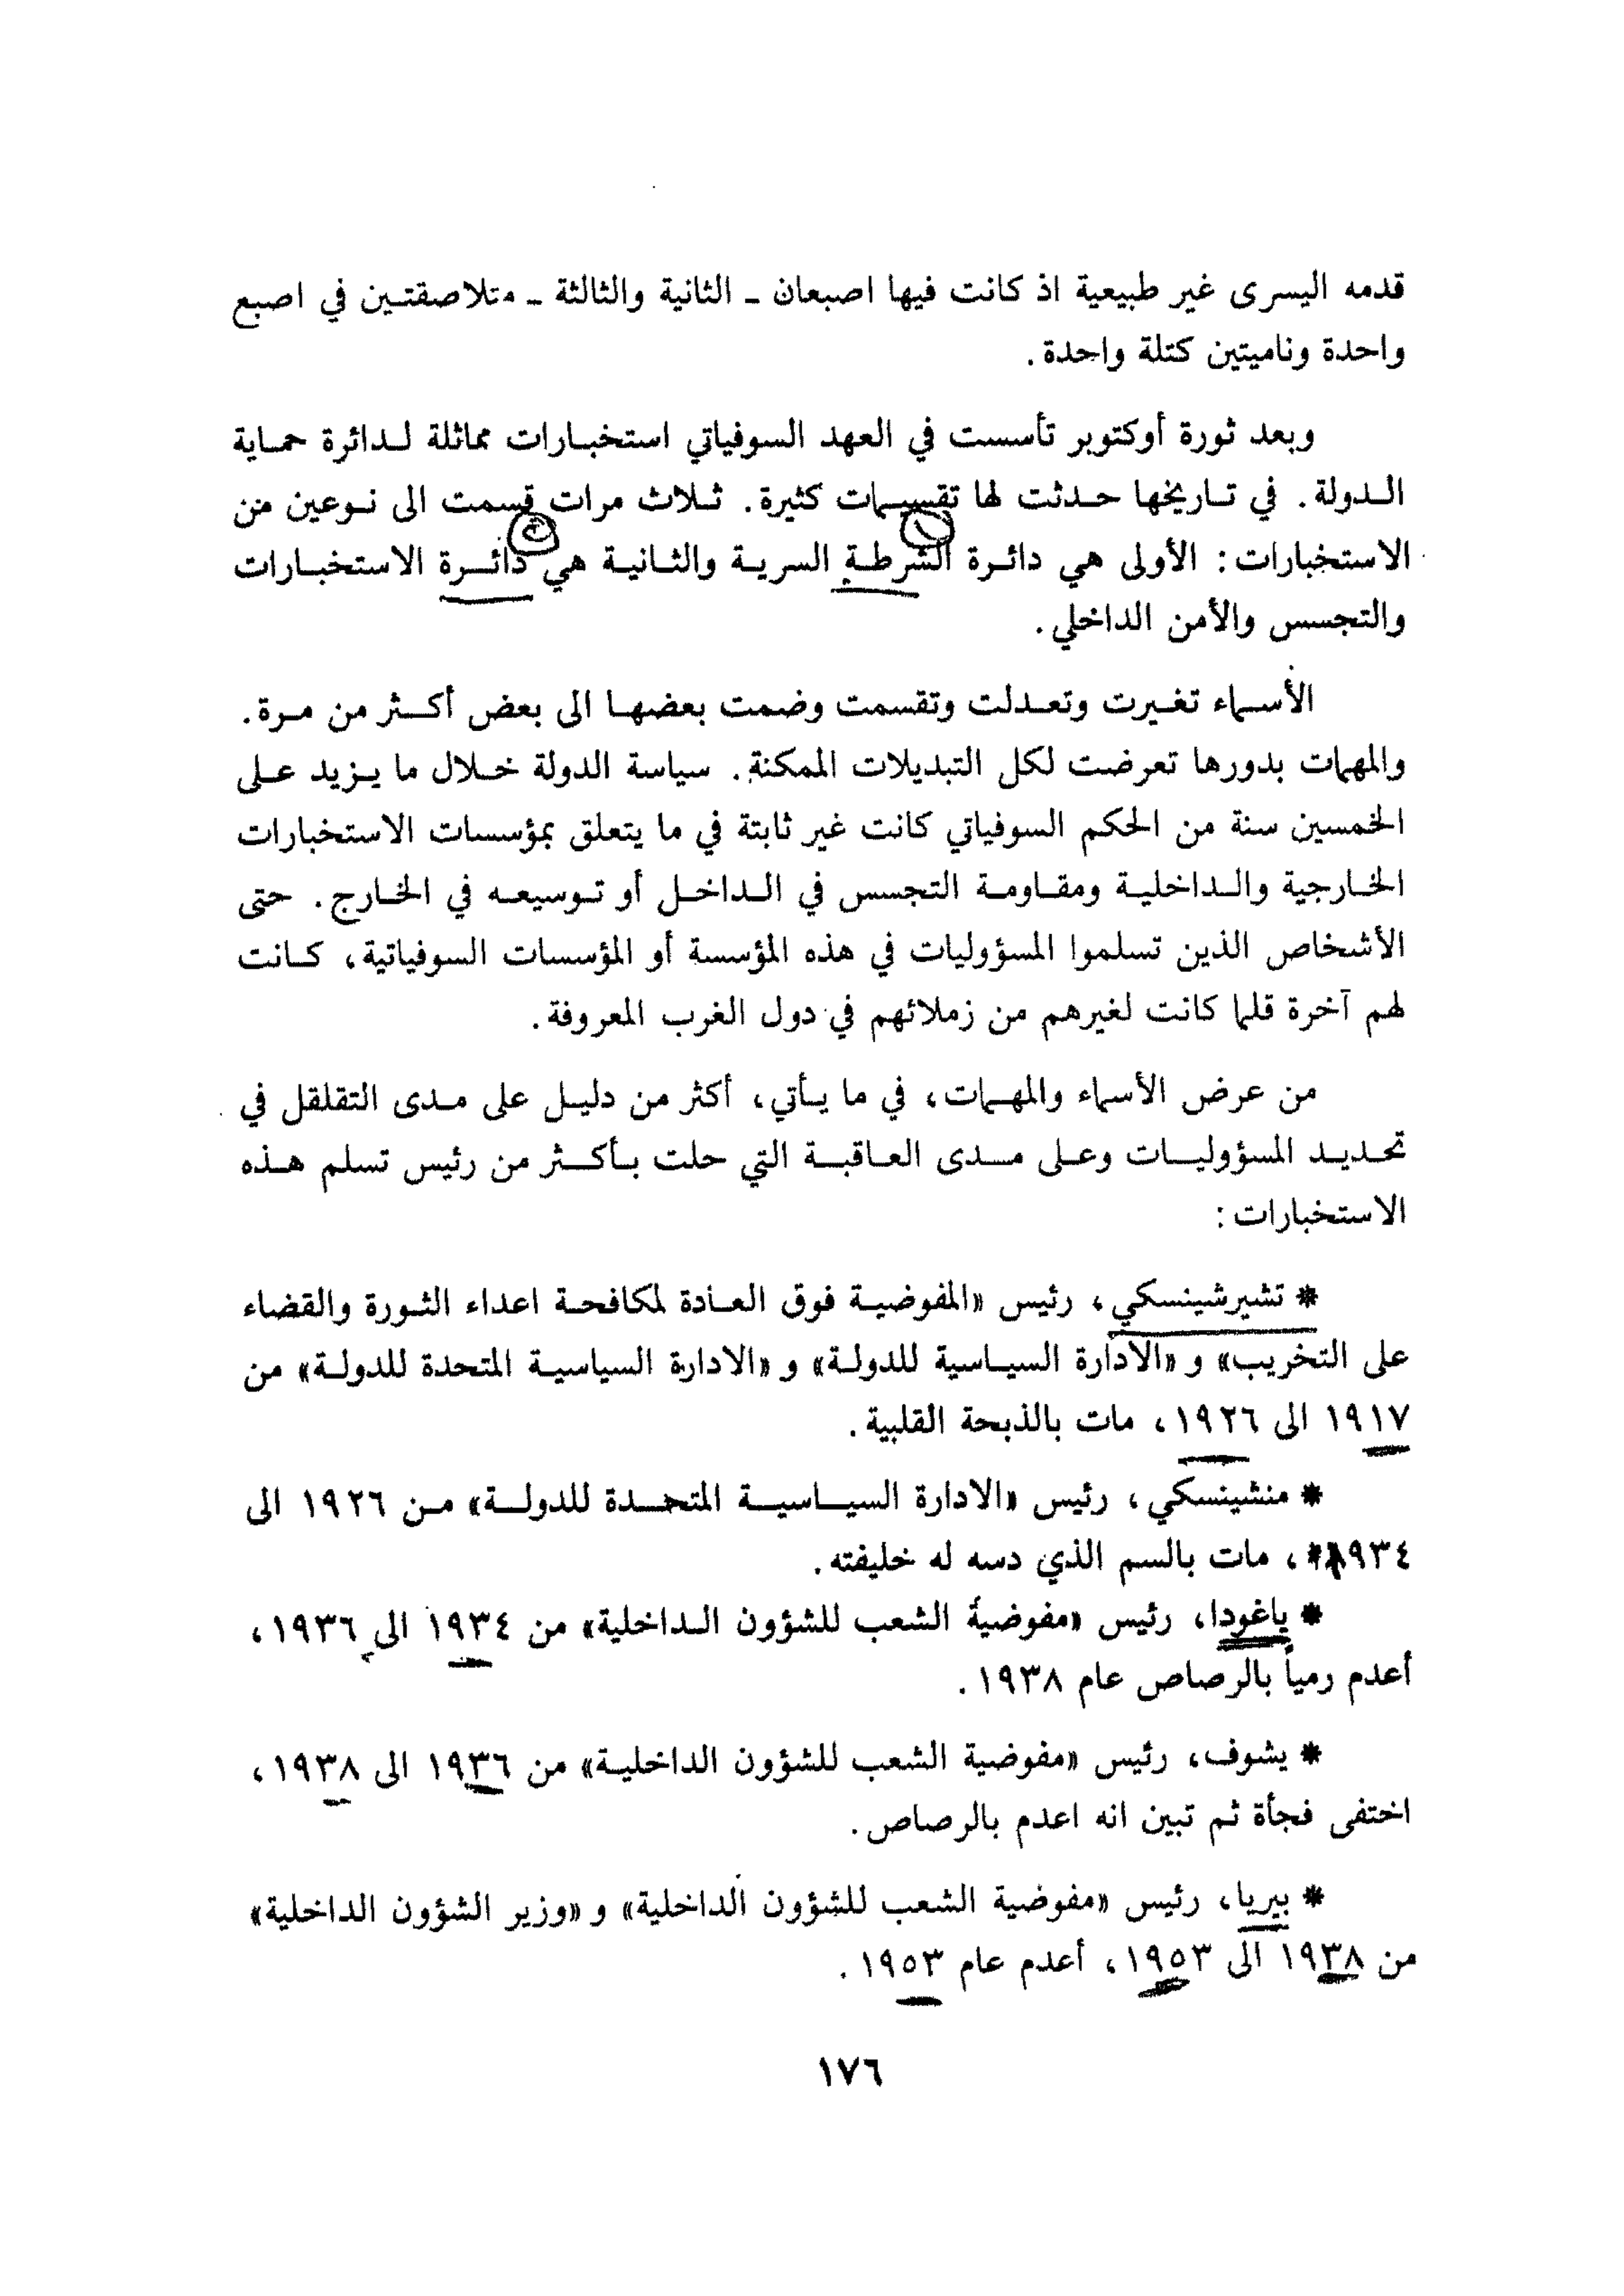 قدمه اليسرى غير طبيعية اذ كانت فيها اصبعان ـ الثانية والثالثة ـ متلاصقتين في اصبع
واحدة وناميتين كتلة واحدة .
وبعد ثورة أوكتوبر تأسست في العهد السوفياتي استخبارات مماثلة لدائرة حماية
الدولة . في تاريخها حدثت لها تقسيمات كثيرة . ثلاث مرات قسمت الى نوعين من
الاستخبارات : الأولى هي دائرة الشرطة السرية والثانية هي دائرة الاستخبارات
والتجسس والأمن الداخلي .
الأسماء تغيرت وتعدلت وتقسمت وضمت بعضها الى بعض أكثر من مرة .
والمهمات بدورها تعرضت لكل التبديلات الممكنة . سياسة الدولة خلال ما يزيد على
الخمسين سنة من الحكم السوفياتي كانت غير ثابتة في ما يتعلق بمؤسسات الاستخبارات
الخارجية والداخلية ومقاومة التجسس في الداخل أو توسيعه في الخارج . حتى
الأشخاص الذين تسلموا المسؤوليات في هذه المؤسسة أو المؤسسات السوفياتية ، كانت
لهم آخرة قلما كانت لغيرهم من زملائهم في دول الغرب المعروفة .
من عرض الأسماء والمهمات ، في ما يأتي ، أكثر من دليل على مدى التقلقل في
تحديد المسؤوليات وعلى مدى العاقبة التي حلت بأكثر من رئيس تسلم هذه
الاستخبارات :
* تشيرشينسكي ، رئيس «المفوضية فوق العادة لمكافحة اعداء الثورة والقضاء
على التخريب» و «الادارة السياسية للدولة» و «الادارة السياسية المتحدة للدولة» من
١٩١٧ الى ١٩٢٦ ، مات بالذبحة القلبية .
* منشينسكي ، رئيس «الادارة السياسية المتحدة للدولة» من ١٩٢٦ الى
١٩٣٤* ، مات بالسم الذي دسه له خليفته .
* ياغودا ، رئيس «مفوضية الشعب للشؤون الداخلية» من ١٩٣٤ الى ١٩٣٦ ،
أعدم رمياً بالرصاص عام ١٩٣٨ .
* يشوف ، رئيس «مفوضية الشعب للشؤون الداخلية» من ١٩٣٦ الى ١٩٣٨ ،
اختفى فجأة ثم تبين انه اعدم بالرصاص .
* بيريا ، رئيس «مفوضية الشعب للشؤون الداخلية» و «وزير الشؤون الداخلية»
من ١٩٣٨ الى ١٩٥٣ ، أعدم عام ١٩٥٣ .
١٧٦